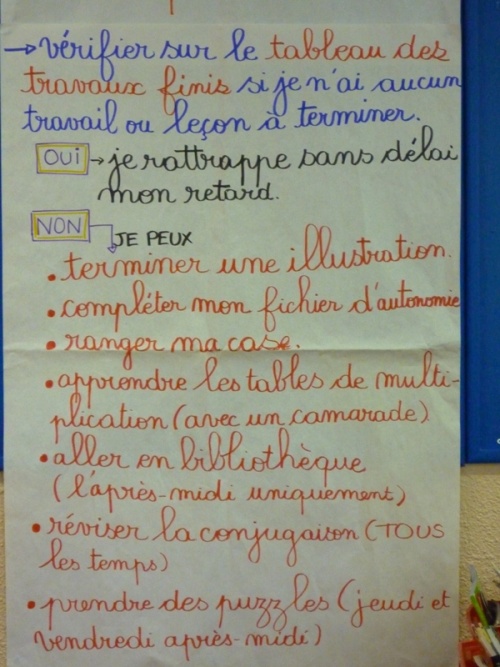 → vérifier sur le tableau des
travaux finis si je n'ai aucun
travail ou leçon à terminer.
OUI → je rattrappe sans délai
mon retard.
NON
JE PEUX
• terminer une illustration.
• compléter mon fichier d'autonomie
• ranger ma case.
• apprendre les tables de multi-
plication (avec un camarade)
• aller en bibliothèque
(l'après-midi uniquement)
• réviser la conjugaison (TOUS
les temps)
• prendre des puzzles (jeudi et
vendredi après-midi)